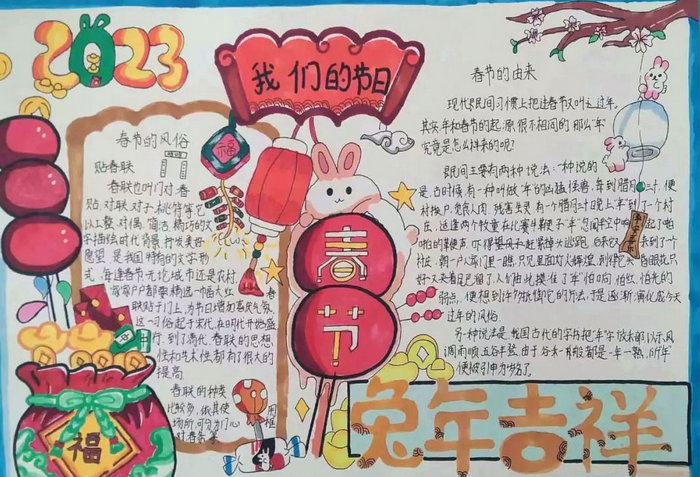 2023
我们的节日
春节的风俗
贴春联
春联也叫门对、春
贴、对联、对子、桃符等,它
以工整、对偶、简洁、精巧的文
字描绘时代背景,抒发美好
愿望,是我国特有的文学形
式,每逢春节,无论城市还是农村
家家户户都要精选一幅大红
春联贴于门上,为节日增加喜庆气氛,
这一习俗起于宋代,在明代开始盛
行,到了清代,春联的思想
性和艺术性都有了很大的
提高
春联的种类
比较多,依其使用
场所,可分为门心、框
对、春条
福
春节
福
春节的由来
现代民间习惯上把过春节又叫过年,
其实,年和春节的起源很不相同,那么“年”
究竟是怎么样来的呢?
民间主要有两种说法:一种说的
是,古时候,有一种叫做“年”的凶猛怪兽,每到腊月三十,便
村挨户,觅食人肉,残害生灵。有一个腊月三十晚上,“年”到了一个村
庄,适逢两个牧童在比赛牛鞭子,“年”忽闻半空中响起了啪
啪的鞭声,吓得望风而逃
村庄
好又夹着尾巴溜了,人们由此摸准了“年”怕响,怕红,怕光的
弱点,便想到许多抵御它的方法,于是逐渐演化成今天
过年的风俗。
另一种说法是,我国古代的字书把“年”字放禾部,以示风
调雨顺,五谷丰登,由于谷禾一般都是一年一熟,所“年”
便被引申为岁名了。
兔年吉祥